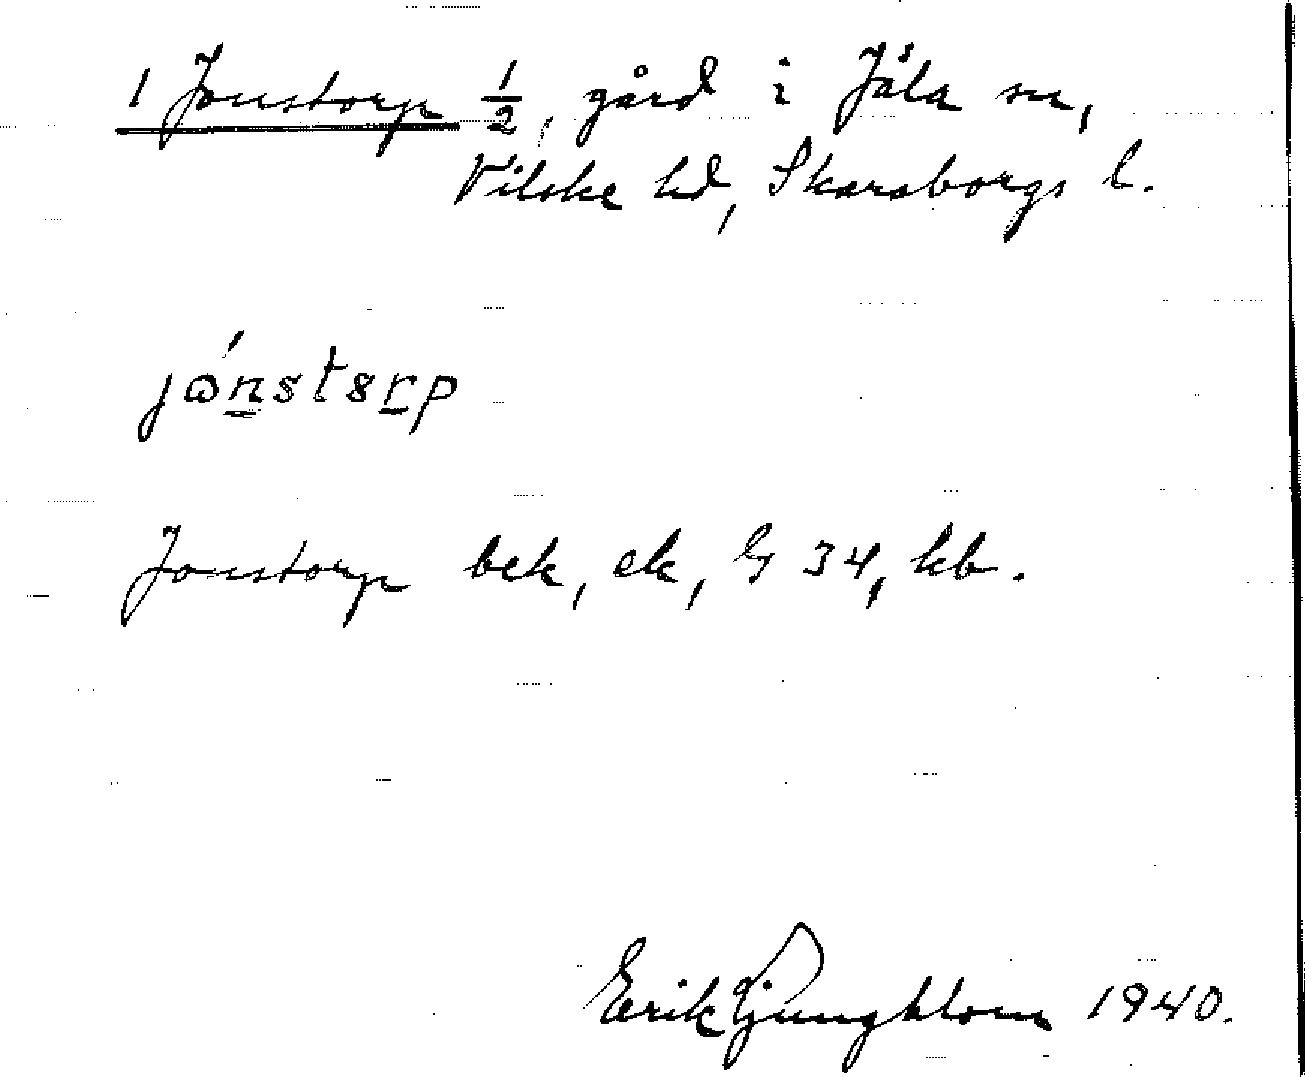 1 Jonstorp 1/2, gård i Jäla sn,
Vilske hd, Skaraborgs l.
Jonstorp bek, ek, G 34, kb.
Erik Ljungblom 1940.